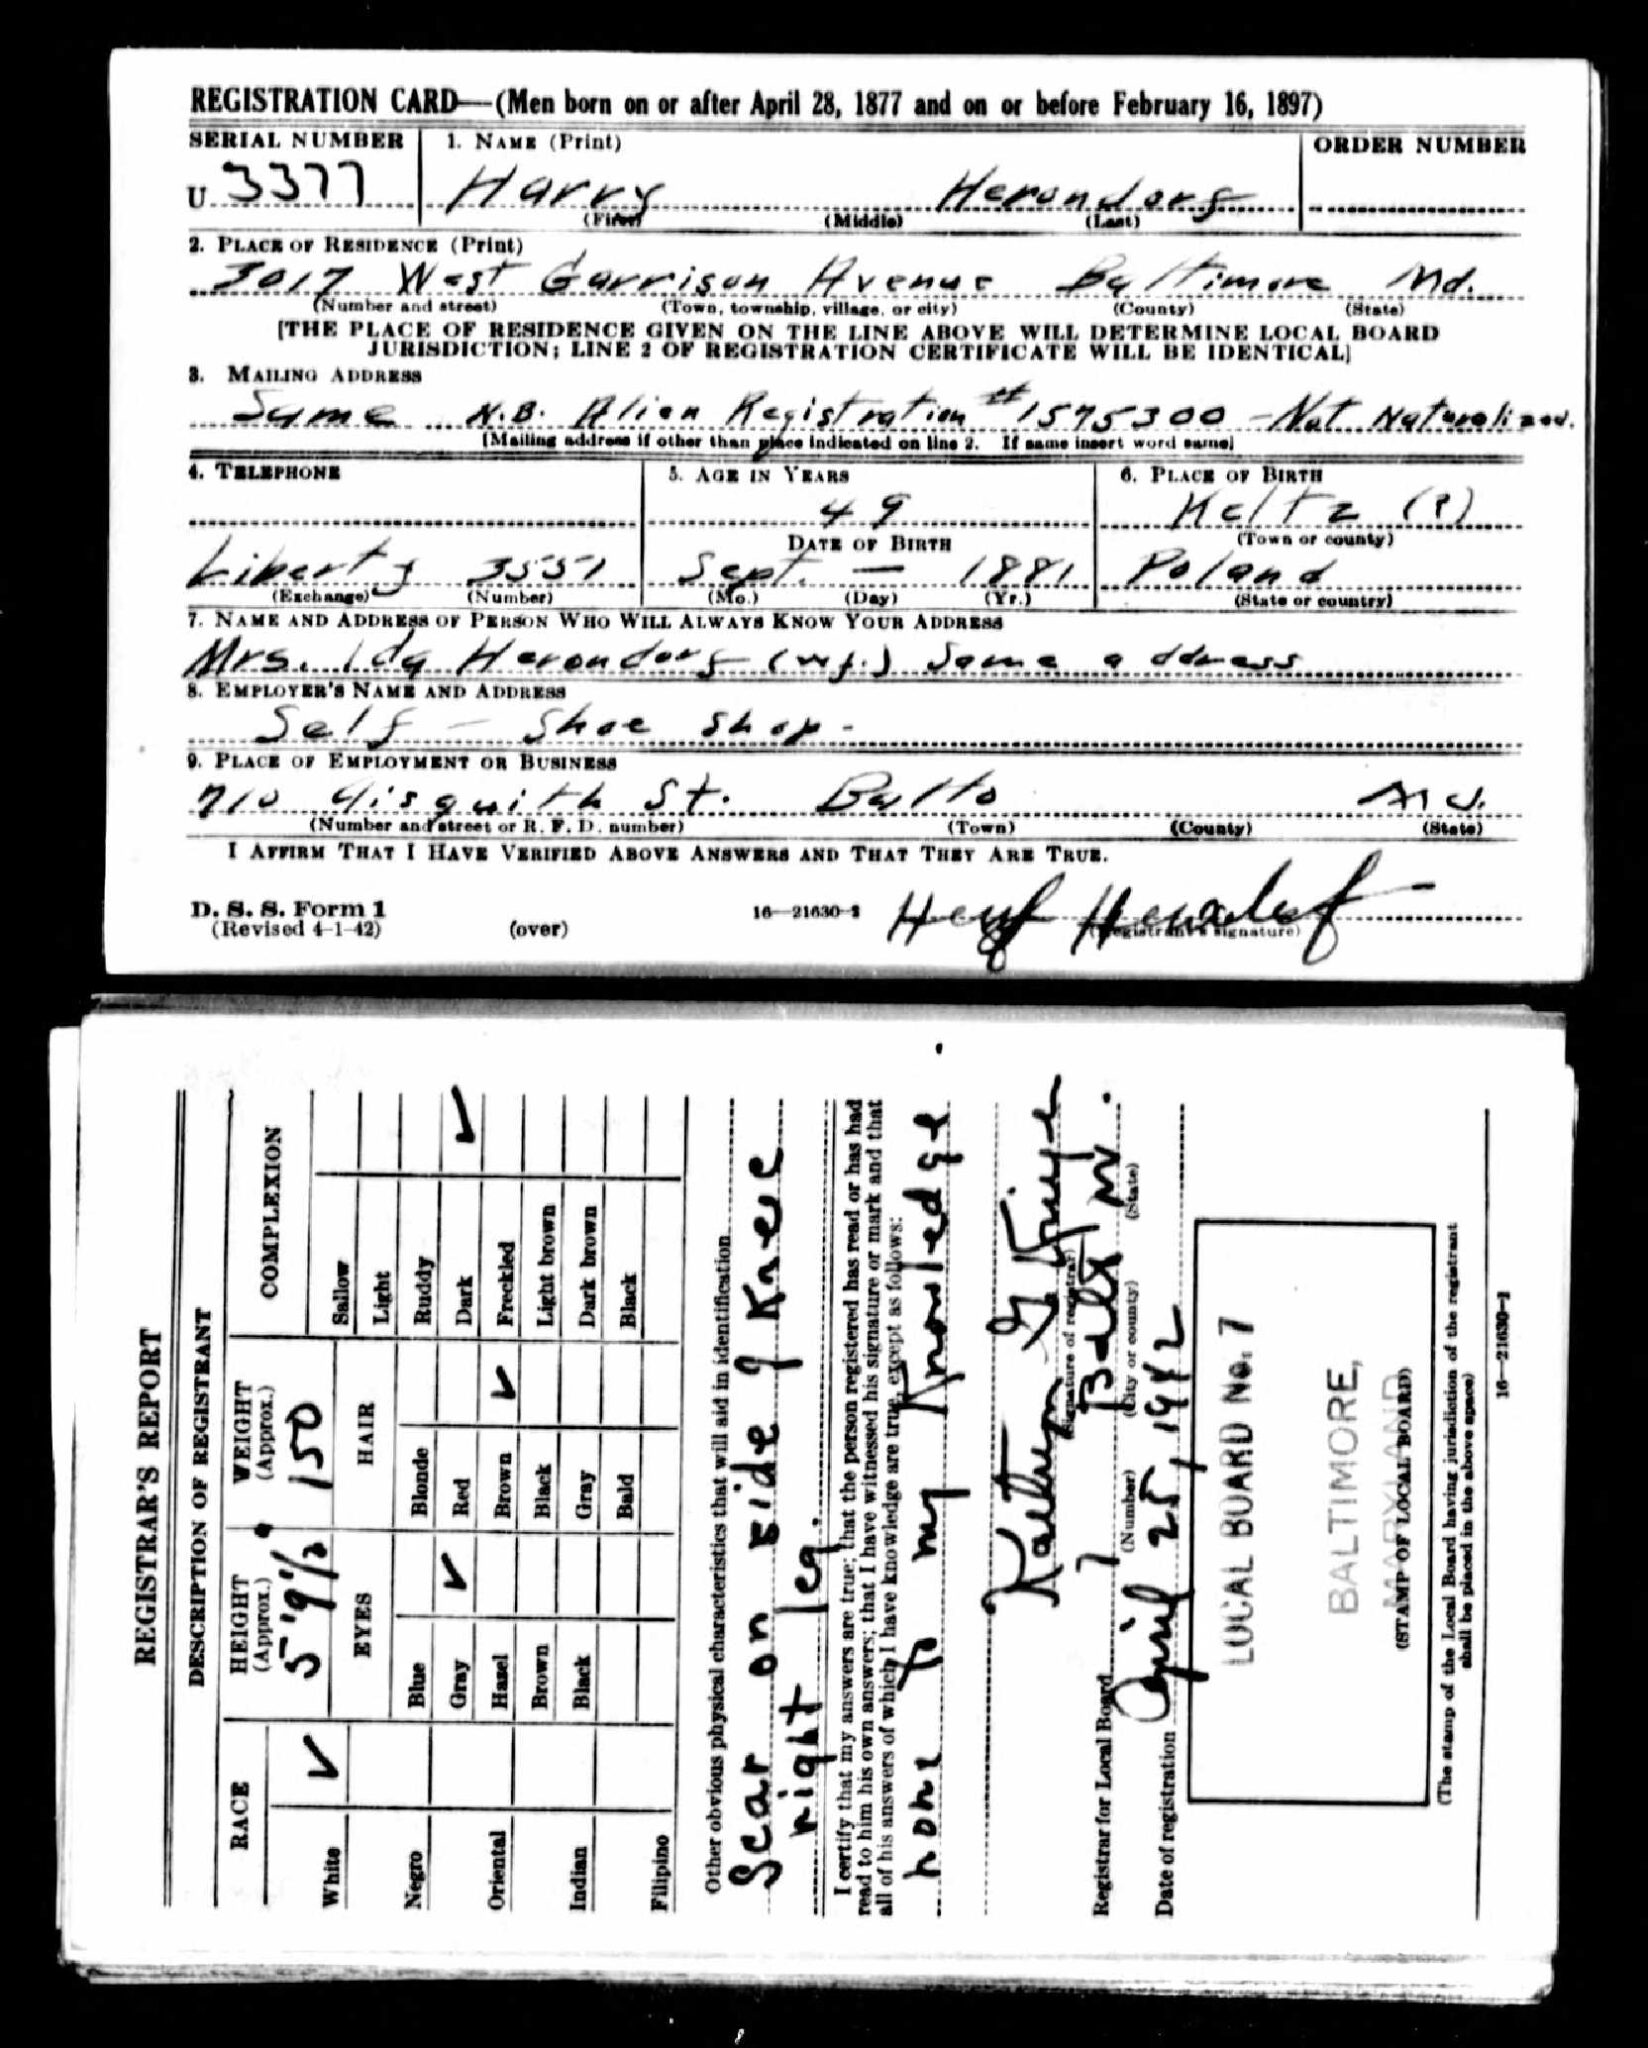 REGISTRATION CARD—(Men born on or after April 28, 1877 and on or before February 16, 1897)
SERIAL NUMBER 1. NAME (Print) ORDER NUMBER
U 3377 Harry Herondorf
(First) (Middle) (Last)
2. PLACE OF RESIDENCE (Print)
3017 West Garrison Avenue Baltimore Md.
(Number and street) (Town, township, village, or city) (County) (State)
[THE PLACE OF RESIDENCE GIVEN ON THE LINE ABOVE WILL DETERMINE LOCAL BOARD
JURISDICTION; LINE 2 OF REGISTRATION CERTIFICATE WILL BE IDENTICAL]
3. MAILING ADDRESS
Same N.B. Alien Registration #1575300 - Not Naturalized.
[Mailing address if other than place indicated on line 2. If same insert word same]
4. TELEPHONE 5. AGE IN YEARS 6. PLACE OF BIRTH
49 Keltz (?)
DATE OF BIRTH (Town or county)
Liberty 3551 Sept. — 1881 Poland
(Exchange) (Number) (Mo.) (Day) (Yr.) (State or country)
7. NAME AND ADDRESS OF PERSON WHO WILL ALWAYS KNOW YOUR ADDRESS
Mrs. Ida Herondorf (wf.) Same address
8. EMPLOYER'S NAME AND ADDRESS
Self - Shoe Shop -
9. PLACE OF EMPLOYMENT OR BUSINESS
710 Aisquith St. Balto Md.
(Number and street or R. F. D. number) (Town) (County) (State)
I AFFIRM THAT I HAVE VERIFIED ABOVE ANSWERS AND THAT THEY ARE TRUE.
D. S. S. Form 1
(Revised 4-1-42) (over) 16—21630-2
(Registrant's signature)
REGISTRAR'S REPORT
DESCRIPTION OF REGISTRANT
RACE HEIGHT (Approx.) WEIGHT (Approx.) COMPLEXION
5'9½" 150
EYES HAIR
White ✓
Negro
Oriental
Indian
Filipino
Blue
Gray ✓
Hazel
Brown
Black
Blonde
Red
Brown ✓
Black
Gray
Bald
Sallow
Light
Ruddy
Dark ✓
Freckled
Light brown
Dark brown
Black
Other obvious physical characteristics that will aid in identification
Scar on side of Knee
right leg.
I certify that my answers are true; that the person registered has read or has had
read to him his own answers; that I have witnessed his signature or mark and that
all of his answers of which I have knowledge are true, except as follows:
none to my Knowledge
Kathryn G.
(Signature of registrar)
Registrar for Local Board 7 Balto M.
(Number) (City or county) (State)
Date of registration April 25, 1942
LOCAL BOARD No. 7
BALTIMORE,
MARYLAND
(STAMP OF LOCAL BOARD)
(The stamp of the Local Board having jurisdiction of the registrant
shall be placed in the above space)
16—21630-2